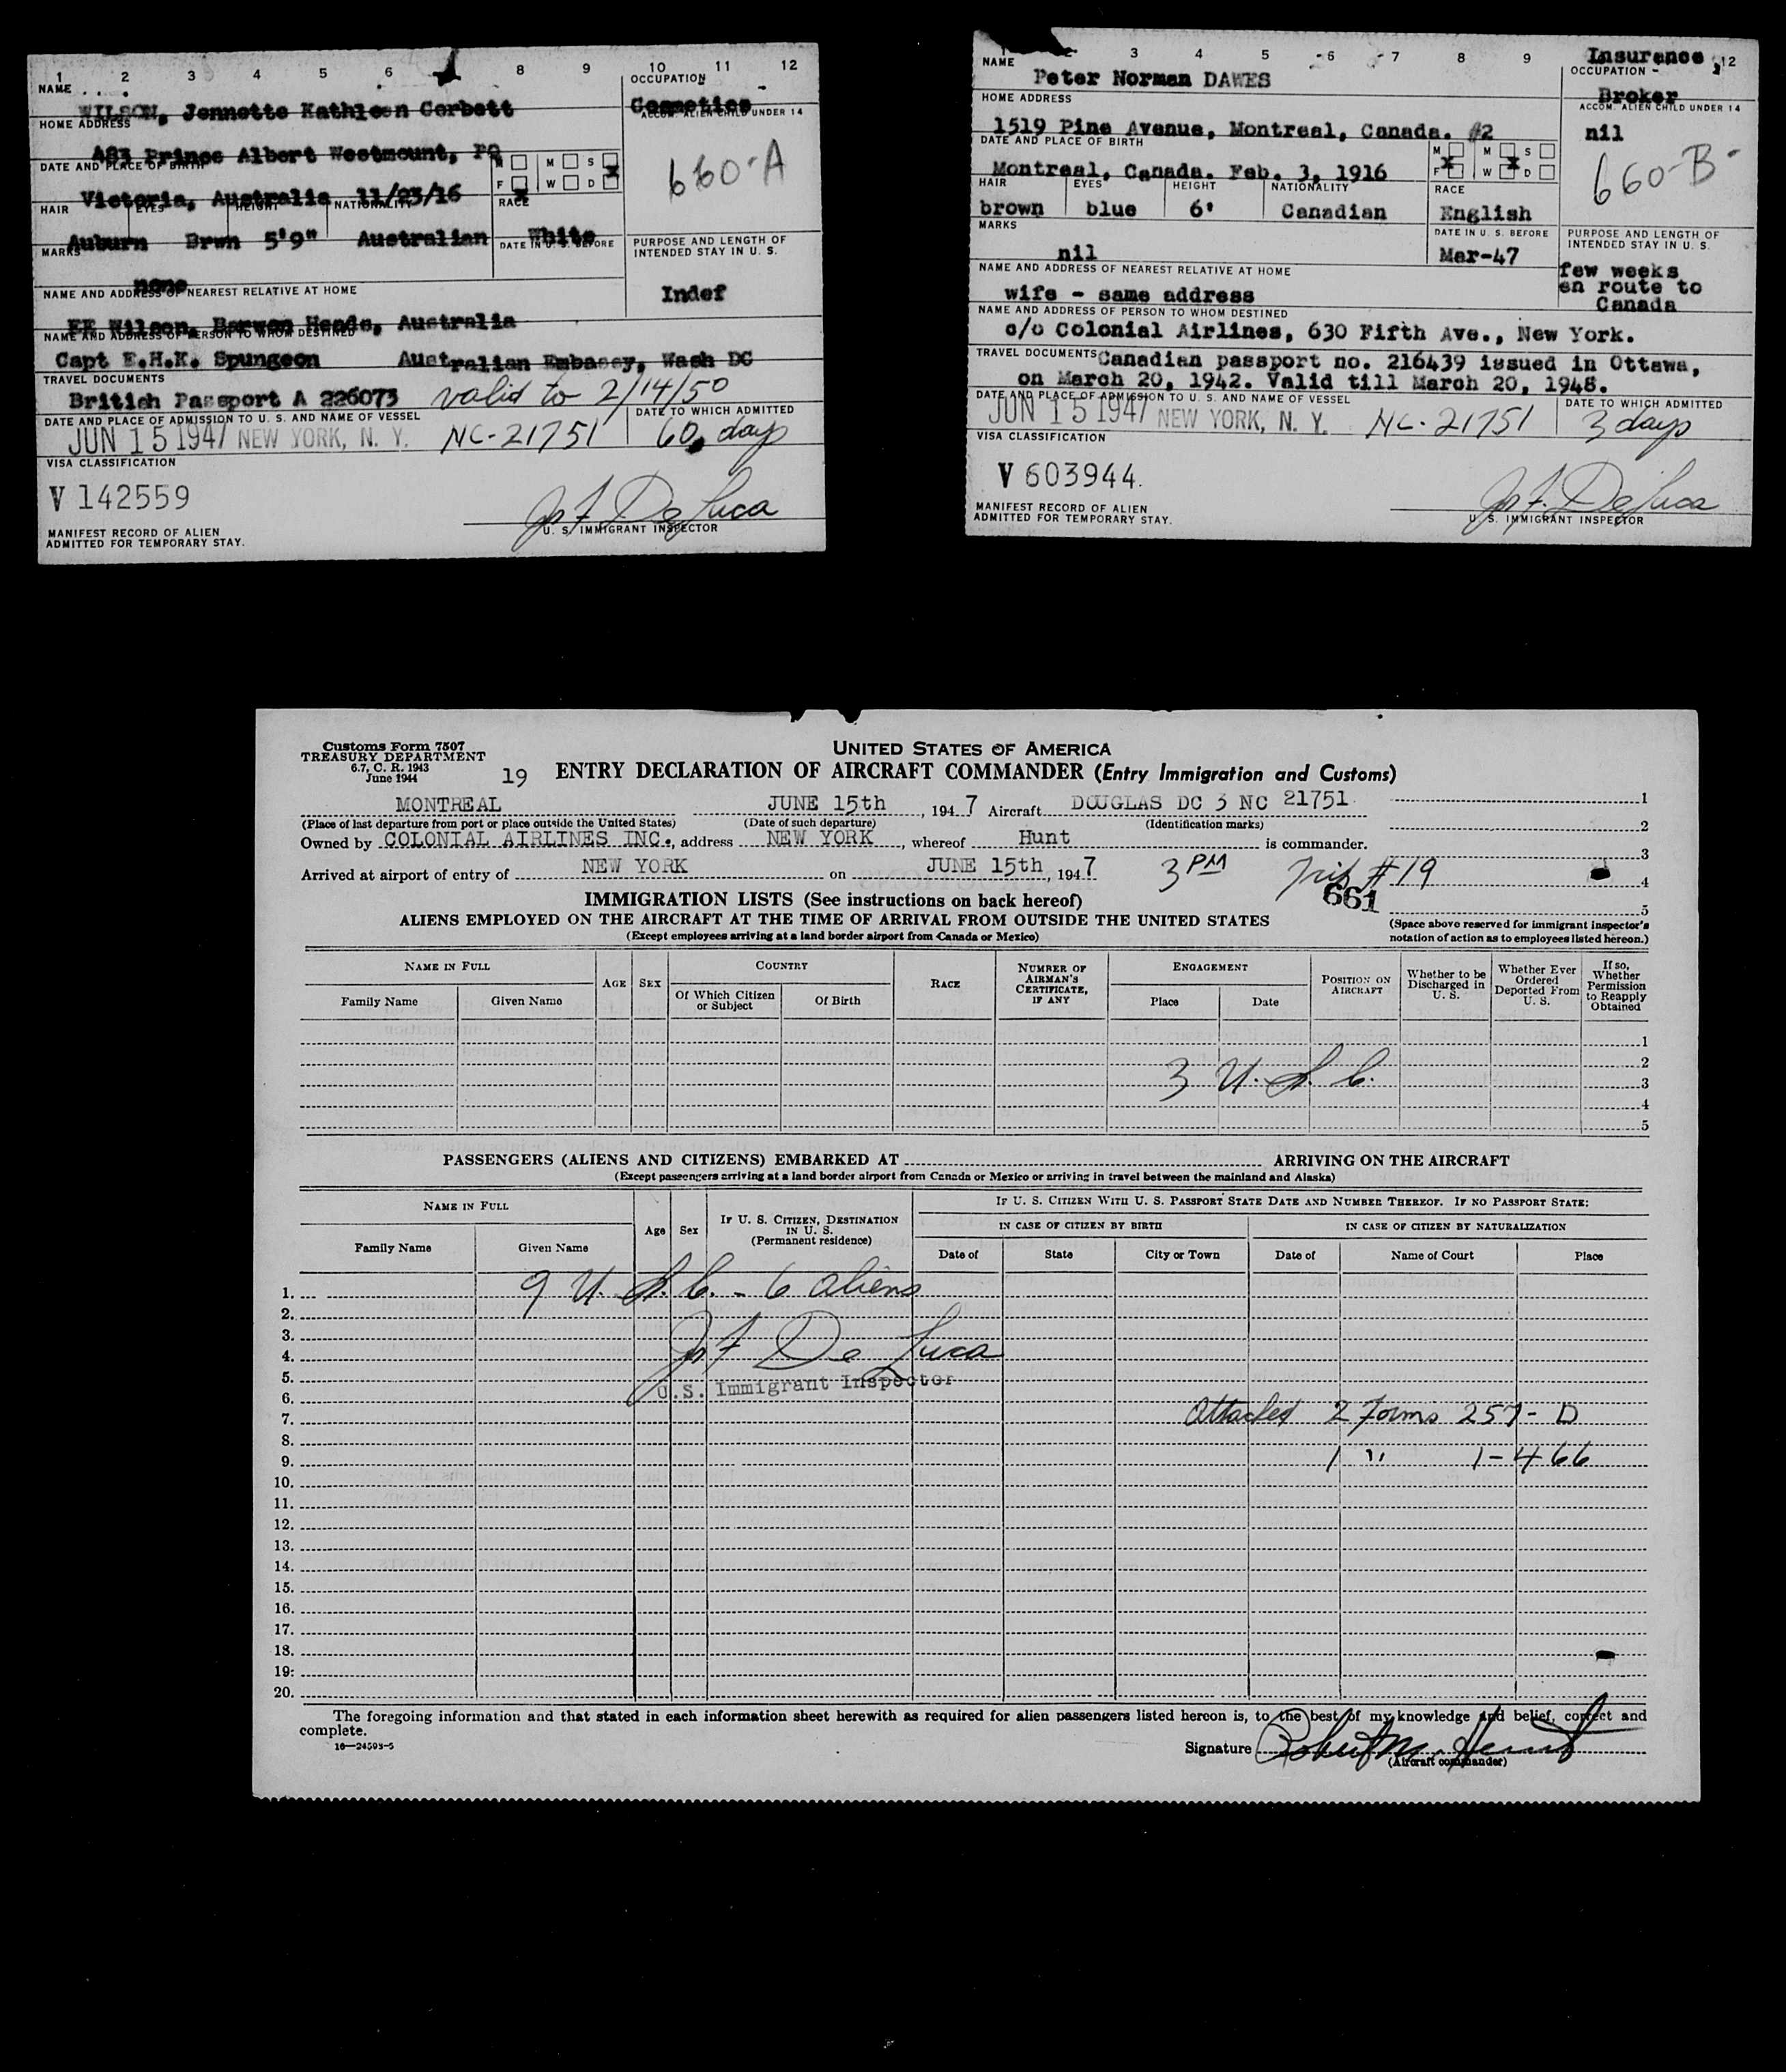 1 2 3 4 5 6 8 9 10 11 12
NAME OCCUPATION
WILSON, Jennette Kathleen Corbett Cosmetics
HOME ADDRESS ACCOM. ALIEN CHILD UNDER 14
Prince Albert Westmount, PQ
DATE AND PLACE OF BIRTH M M S
660-A
Victoria, Australia 11/23/16 F X W D X
HAIR EYES HEIGHT NATIONALITY RACE
Auburn Brwn 5'9" Australian White
MARKS DATE IN U. S. BEFORE PURPOSE AND LENGTH OF
INTENDED STAY IN U. S.
none
NAME AND ADDRESS OF NEAREST RELATIVE AT HOME Indef
EE Wilson, Barwon Heads, Australia
NAME AND ADDRESS OF PERSON TO WHOM DESTINED
Capt E.H.K. Spungeon Australian Embassy, Wash DC
TRAVEL DOCUMENTS
British Passport A 226073 valid to 2/14/50
DATE AND PLACE OF ADMISSION TO U. S. AND NAME OF VESSEL DATE TO WHICH ADMITTED
JUN 15 1947 NEW YORK, N. Y. NC-21751 60 days
VISA CLASSIFICATION
V 142559
Jos F. De Luca
MANIFEST RECORD OF ALIEN U. S. IMMIGRANT INSPECTOR
ADMITTED FOR TEMPORARY STAY.
1 2 3 4 5 6 7 8 9 Insurance, 12
NAME OCCUPATION
Peter Norman DAWES Broker
HOME ADDRESS ACCOM. ALIEN CHILD UNDER 14
1519 Pine Avenue, Montreal, Canada. #2 nil
DATE AND PLACE OF BIRTH M X M X S
660-B
Montreal, Canada. Feb. 3, 1916 F W D
HAIR EYES HEIGHT NATIONALITY RACE
brown blue 6' Canadian English
MARKS DATE IN U. S. BEFORE PURPOSE AND LENGTH OF
INTENDED STAY IN U. S.
nil Mar-47
NAME AND ADDRESS OF NEAREST RELATIVE AT HOME few weeks
wife - same address en route to
Canada
NAME AND ADDRESS OF PERSON TO WHOM DESTINED
c/o Colonial Airlines, 630 Fifth Ave., New York.
TRAVEL DOCUMENTS Canadian passport no. 216439 issued in Ottawa,
on March 20, 1942. Valid till March 20, 1948.
DATE AND PLACE OF ADMISSION TO U. S. AND NAME OF VESSEL DATE TO WHICH ADMITTED
JUN 15 1947 NEW YORK, N. Y. NC-21751 3 days
VISA CLASSIFICATION
V 603944.
Jos F. De Luca
MANIFEST RECORD OF ALIEN U. S. IMMIGRANT INSPECTOR
ADMITTED FOR TEMPORARY STAY.
Customs Form 7507
TREASURY DEPARTMENT
6.7, C. R. 1943
June 1944
UNITED STATES OF AMERICA
19 ENTRY DECLARATION OF AIRCRAFT COMMANDER (Entry Immigration and Customs)
MONTREAL JUNE 15th, 1947 Aircraft DOUGLAS DC 3 NC 21751 1
(Place of last departure from port or place outside the United States) (Date of such departure) (Identification marks) 2
Owned by COLONIAL AIRLINES INC., address NEW YORK, whereof Hunt is commander. 3
Arrived at airport of entry of NEW YORK on JUNE 15th, 1947 3 PM Trip #19 4
661 5
IMMIGRATION LISTS (See instructions on back hereof)
ALIENS EMPLOYED ON THE AIRCRAFT AT THE TIME OF ARRIVAL FROM OUTSIDE THE UNITED STATES
(Space above reserved for immigrant inspector's notation of action as to employees listed hereon.)
(Except employees arriving at a land border airport from Canada or Mexico)
NAME IN FULL AGE SEX COUNTRY RACE NUMBER OF AIRMAN'S CERTIFICATE, IF ANY ENGAGEMENT POSITION ON AIRCRAFT Whether to be Discharged in U. S. Whether Ever Ordered Deported From U. S. If so, Whether Permission to Reapply Obtained
Family Name Given Name Of Which Citizen or Subject Of Birth Place Date
1
2
3 U. S. C. 3
4
5
PASSENGERS (ALIENS AND CITIZENS) EMBARKED AT ARRIVING ON THE AIRCRAFT
(Except passengers arriving at a land border airport from Canada or Mexico or arriving in travel between the mainland and Alaska)
NAME IN FULL Age Sex IF U. S. CITIZEN, DESTINATION IN U. S. (Permanent residence) IF U. S. CITIZEN WITH U. S. PASSPORT STATE DATE AND NUMBER THEREOF. IF NO PASSPORT STATE:
IN CASE OF CITIZEN BY BIRTH IN CASE OF CITIZEN BY NATURALIZATION
Family Name Given Name Date of State City or Town Date of Name of Court Place
1. 9 U. S. C. - 6 aliens
2.
3.
4. Jos F De Luca
5.
6. U.S. Immigrant Inspector
7. Attached 2 Forms 257-D
8.
9. 1 " 1-466
10.
11.
12.
13.
14.
15.
16.
17.
18.
19.
20.
The foregoing information and that stated in each information sheet herewith as required for alien passengers listed hereon is, to the best of my knowledge and belief, correct and
complete.
16—24593-5
Signature Robert M. Hunt
(Aircraft commander)